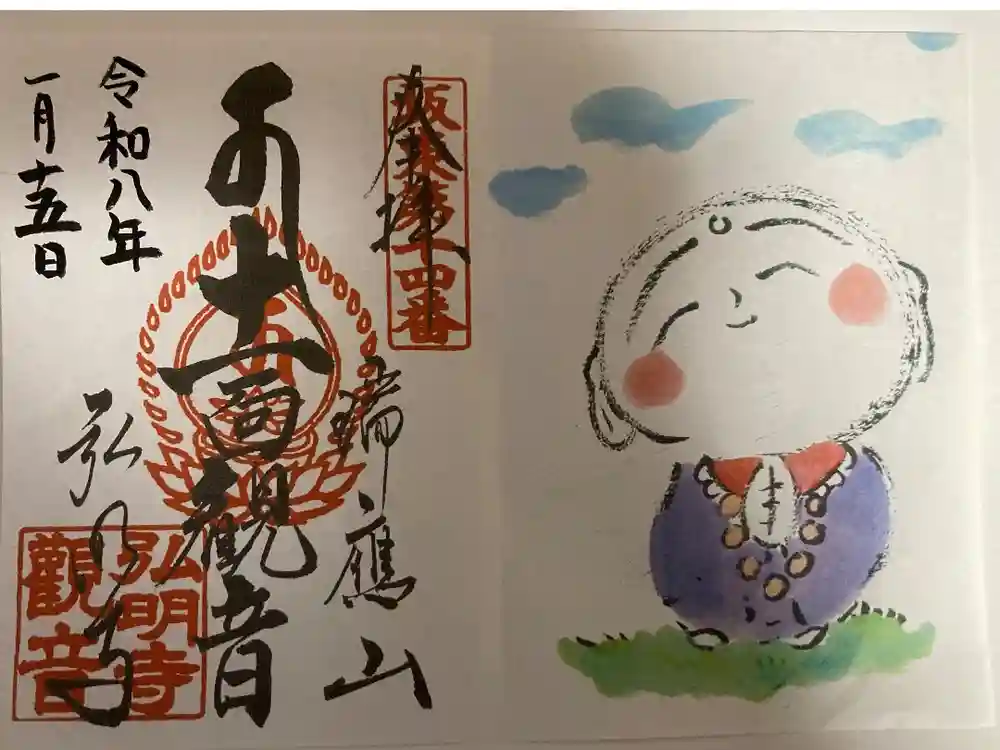 奉拝
坂東第十四番
瑞應山
十一面観音
弘明寺
弘明寺
觀音
令和八年
一月十五日